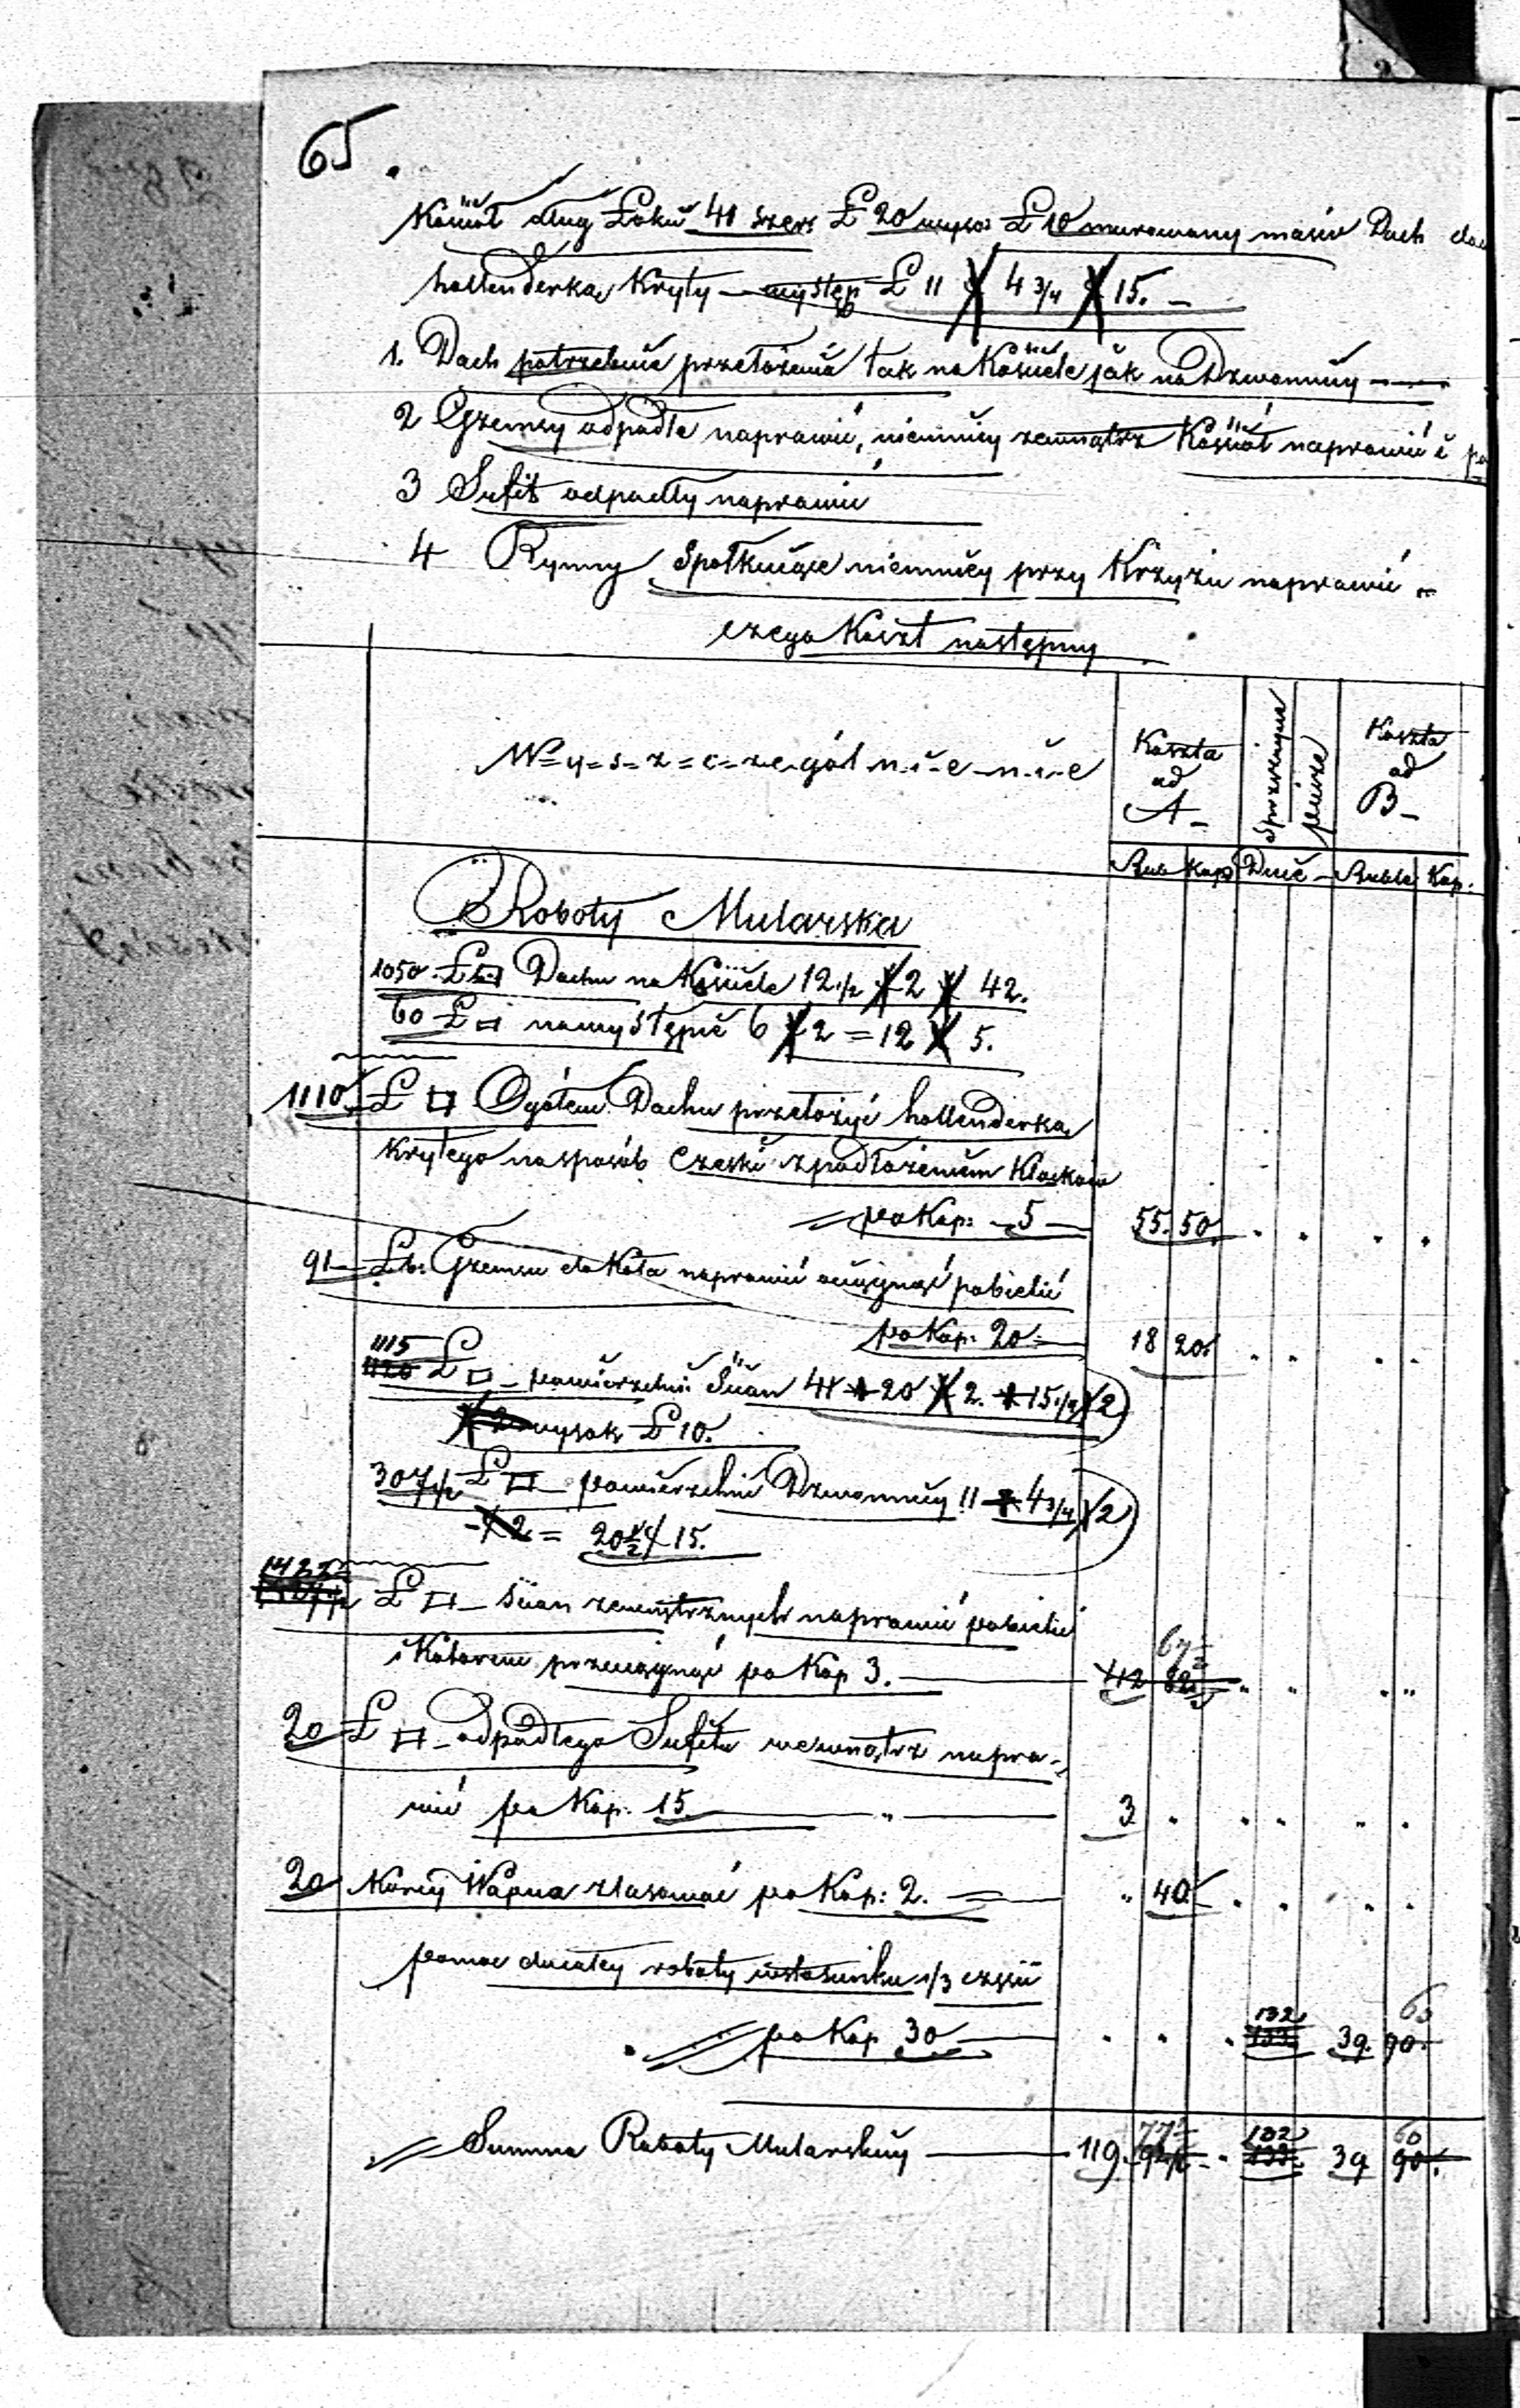 65.
Kościół dług Łokci 41 szer: Ł 20 wyso: Ł 10 murowany masiw Dach
hollenderką kryty — występ Ł 11 X 4 3/4 X 15. —
1. Dach potrzebuie przełożenia tak na Kościele jak na Dzwonnicy —
2 Gzemsy odpadłe naprawić, niemniey zewnątrz Kościół naprawić i
3 Sufit odpadły naprawić
4 Rynny niemniey przy Krzyżu naprawić
czego Koszt następny
W=y=s=z=c=ze-gól n-i-e-n-i-e
Koszta ad A —
Koszta ad B —
Rub Kop Dnie Ruble Kop:
Roboty Mularska
1050 Ł □ Dachu na Kościele 12 1/2 X 2 X 42.
60 Ł □ na występie 6 X 2 = 12 X 5.
1110 Ł □ Ogółem Dachu przełożyć hollenderką
krytego na sposób Czeski z podłożeniem Klocków
po Kop: 5 — 55. 50.
91 — Łb: Gzemsu do Koła naprawić pobielić
po Kop: 20 — 18 20.
1115
1120 Ł □ — powierzchni Ścian 41 + 20 X 2. + 15 1/2 X 2
X 2 wysok Ł 10.
307 1/2 Ł □ — powierzchni Dzwonnicy 11 + 4 3/4 X 2
X 2 = 20 1/2 X 15.
1422 1/2
Ł □ — ścian zewnętrznych naprawić pobielić
i Kolorem przeciągnąć po Kop 3. — 42 67 1/2
20 Ł □ — odpadłego Sufitu wewnątrz napra-
wić po Kop. 15 — " — 3 "
20 Korcy Wapna zlasować po Kop: 2. — " 40
pomoc do całey roboty w stosunku 1/3 części
po Kop 30 — 132 133 39. 60 90.
Summa Roboty Mularskiey — 119. 77 1/2 132 133 39 60 90.